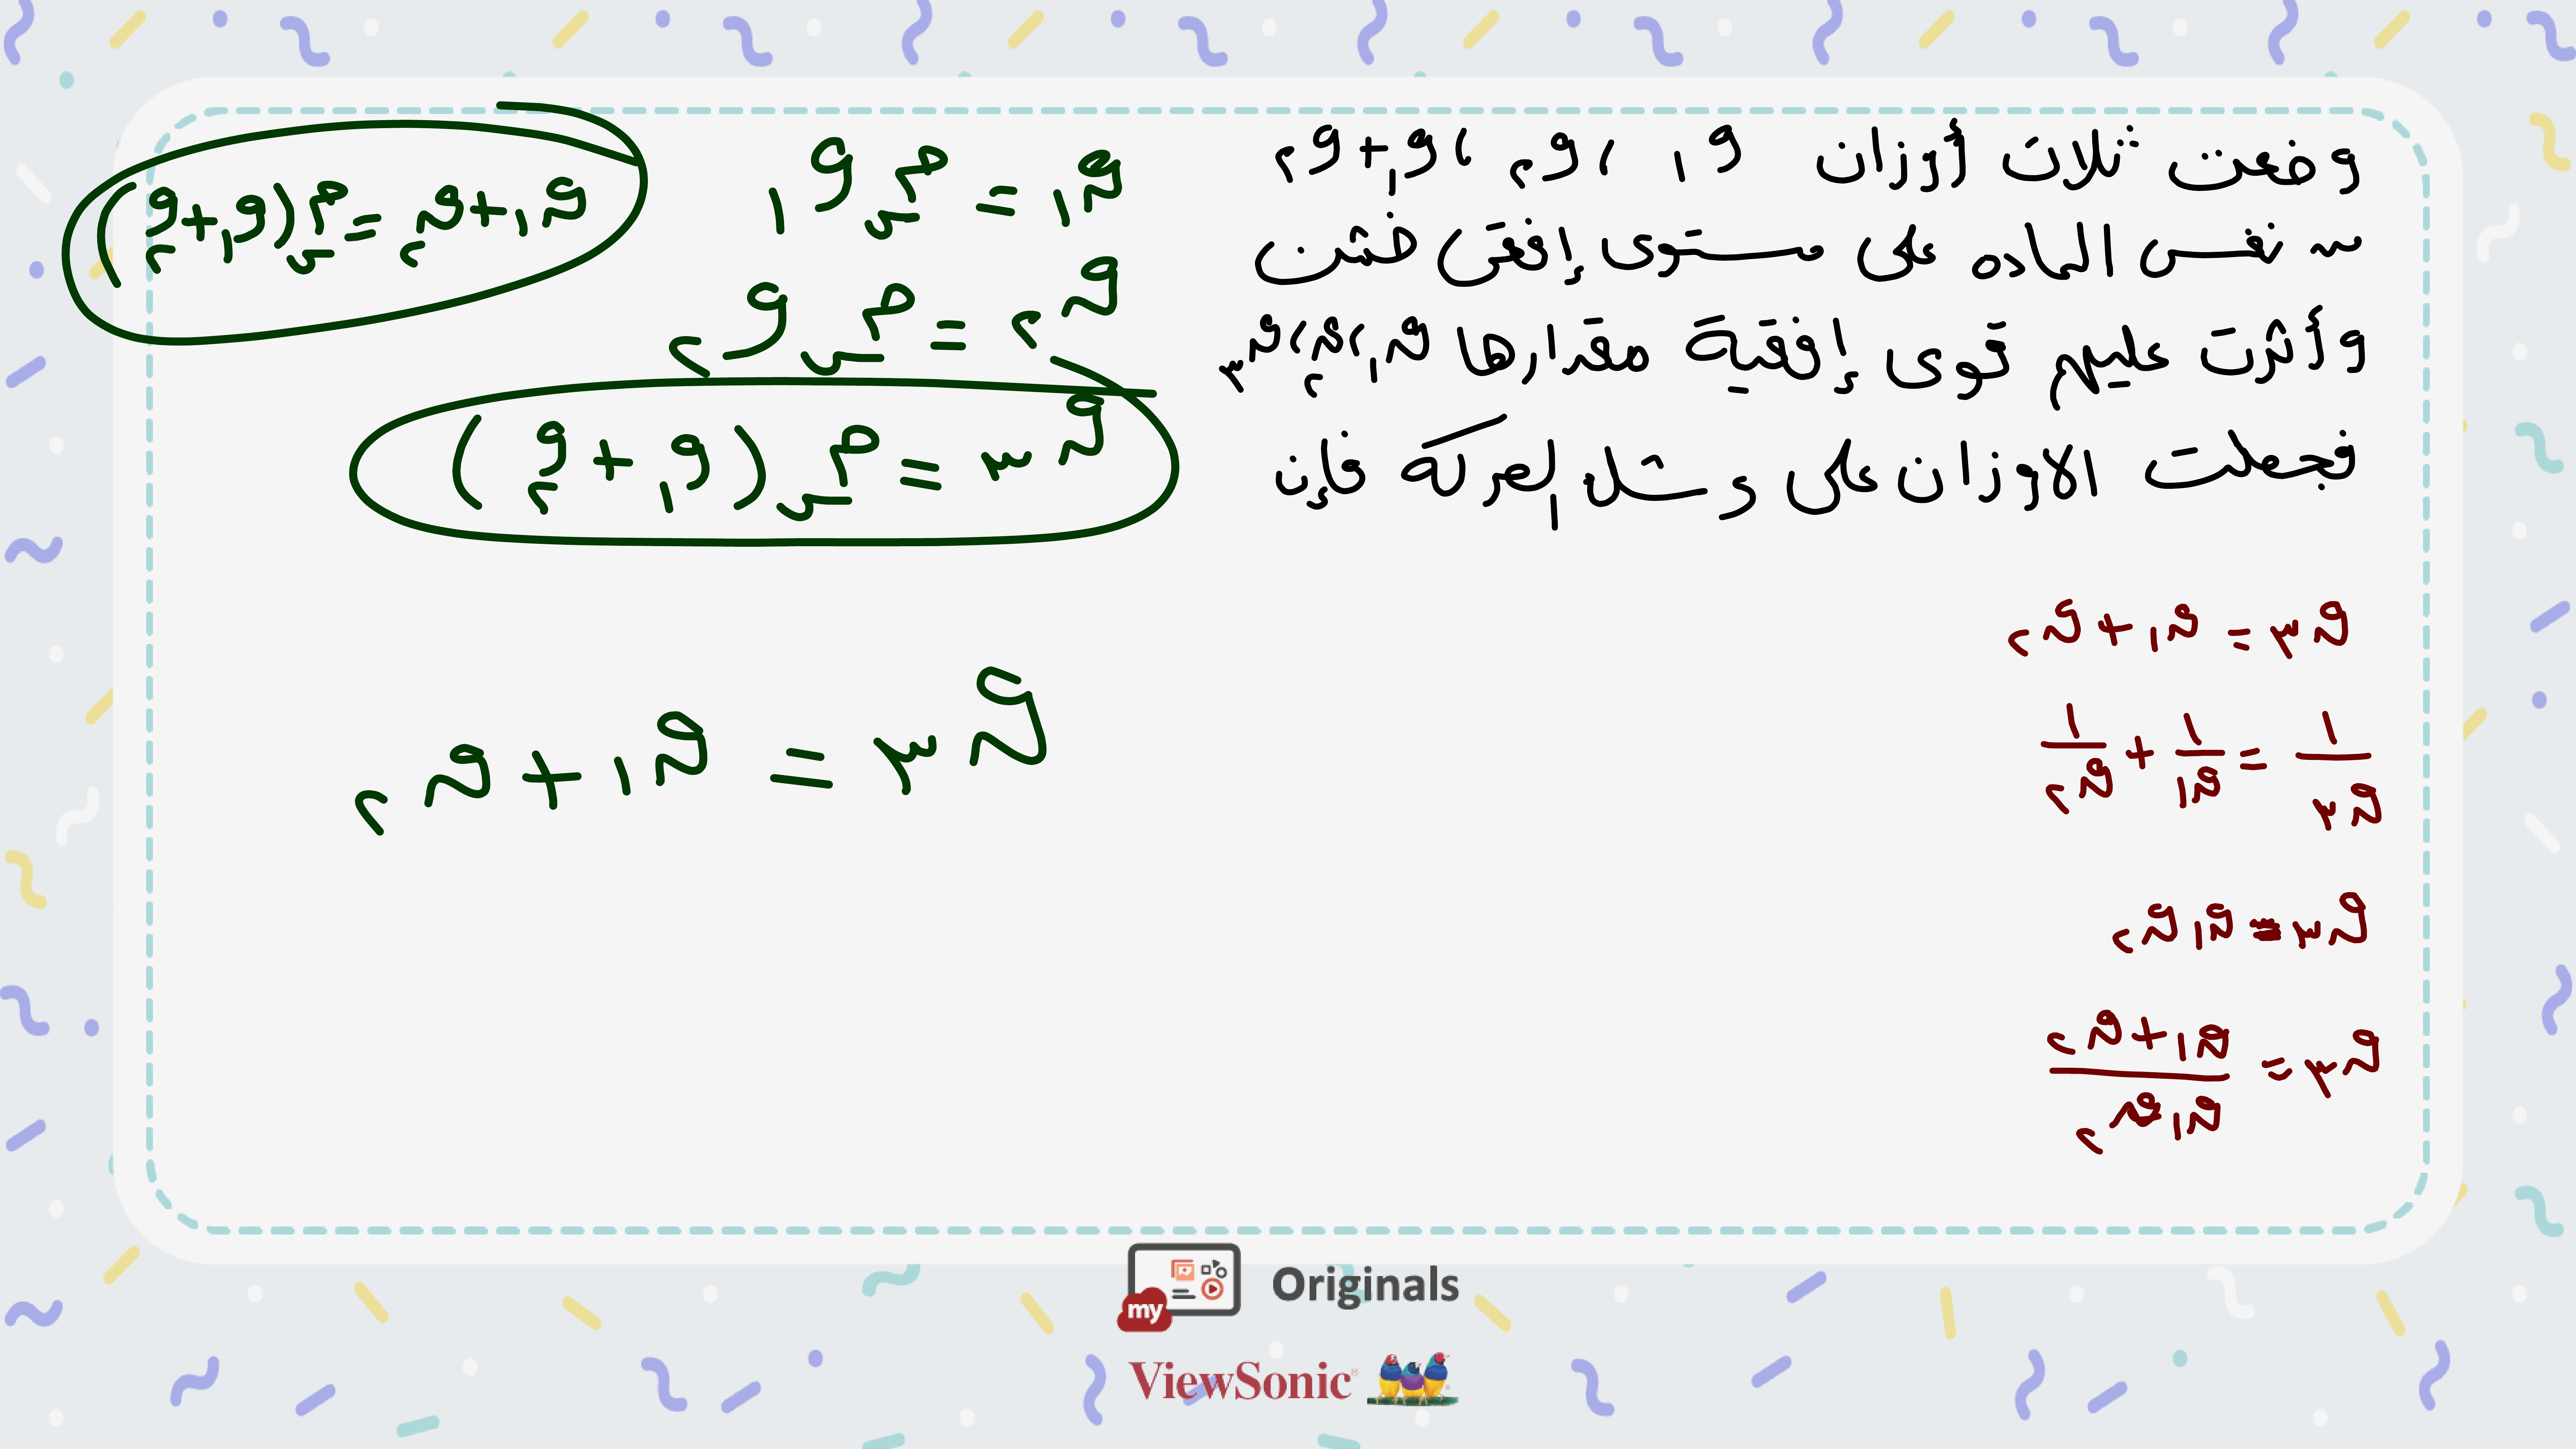 وضعت ثلاث أوزان و١ ، و٢ ، و١+و٢
من نفس الماده على مستوى إفقى خشن
وأثرت عليهم قوى إفقية مقدارها ق١،ق٢،ق٣
فجعلت الاوزان على وشك الحركه فإن
ق٣ = ق١+ق٢
١/ق٣ = ١/ق١ + ١/ق٢
ق٣ = ق١ق٢
ق٣ = (ق١+ق٢)/(ق١ق٢)
ق١ = م س و١
ق٢ = م س و٢
ق٣ = م س (و١+و٢)
ق١+ق٢ = م س (و١+و٢)
ق٣ = ق١+ق٢
my Originals
ViewSonic